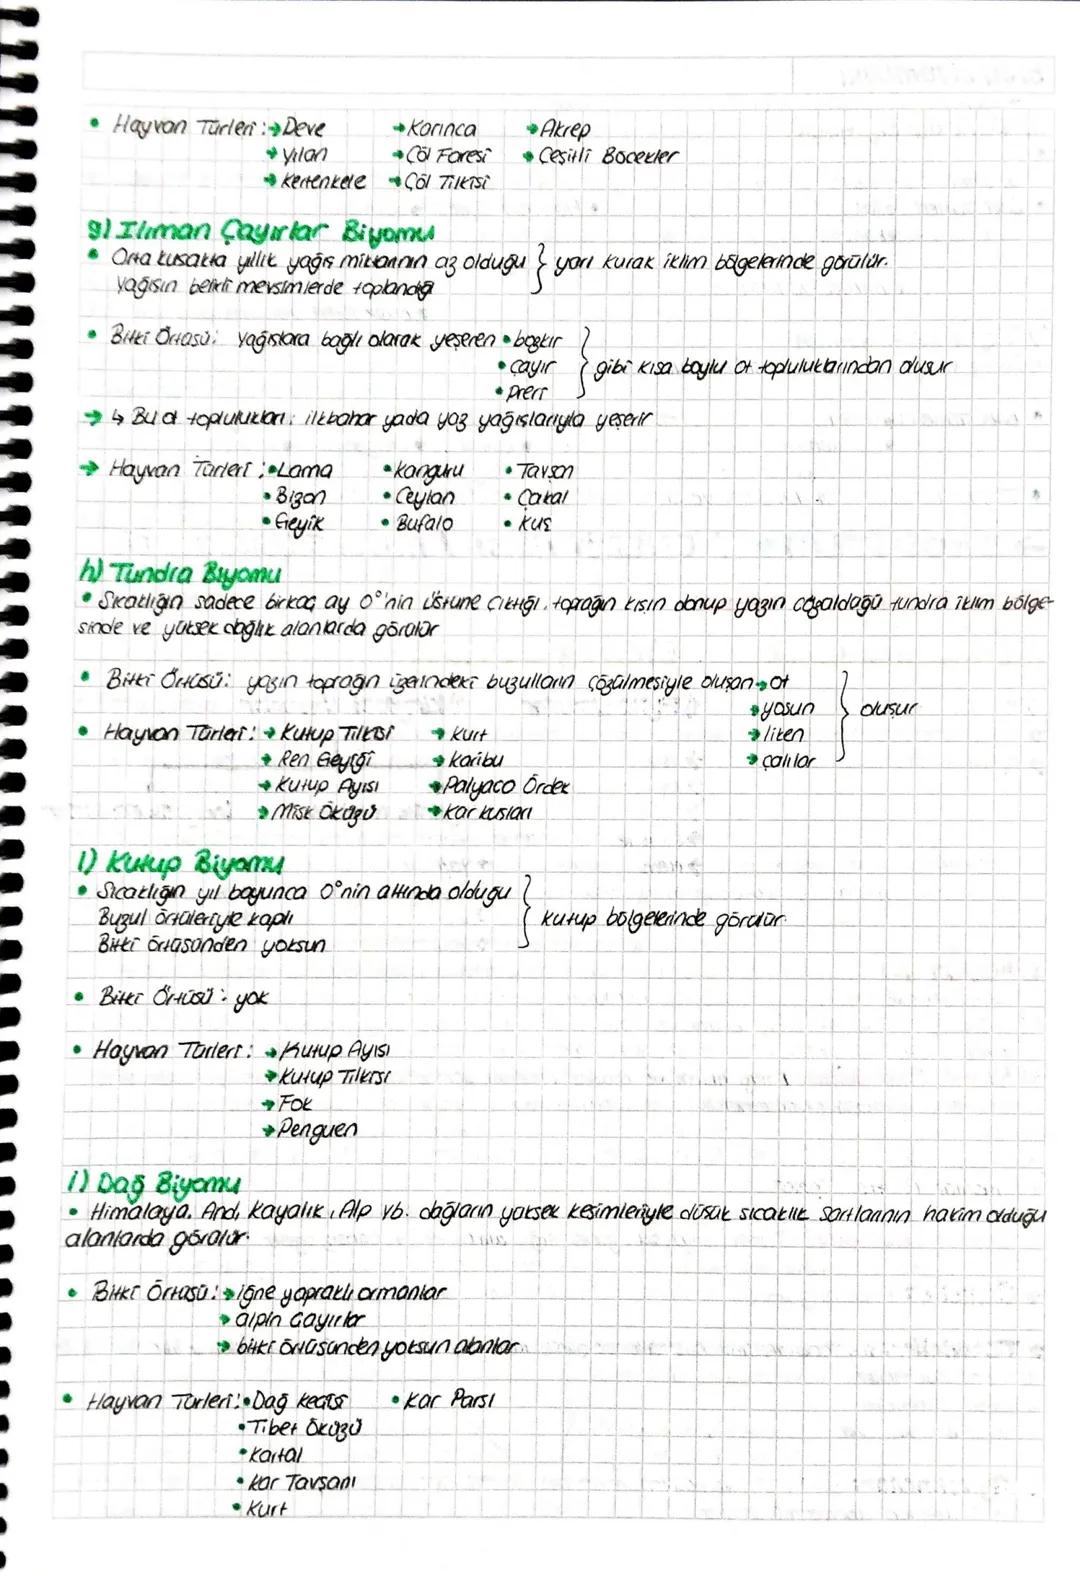 • Hayvan Türleri : → Deve → Karınca → Akrep
→ Yılan → Çöl Faresi → Çeşitli Böcekler
→ Kertenkele → Çöl Tilkisi
g) Ilıman Çayırlar Biyomu
• Orta kuşakta yıllık yağış miktarının az olduğu } yarı kurak iklim bölgelerinde görülür.
yağışın belirli mevsimlerde toplandığı
• Bitki Örtüsü: yağışlara bağlı olarak yeşeren • bozkır
• çayır } gibi kısa boylu ot topluluklarından oluşur
• preri
→ ↳ Bu ot toplulukları: ilkbahar yada yaz yağışlarıyla yeşerir
→ Hayvan Türleri : • Lama • Kanguru • Tavşan
• Bizon • Ceylan • Çakal
• Geyik • Bufalo • Kuş
h) Tundra Biyomu
• Sıcaklığın sadece birkaç ay 0°'nin üstüne çıktığı, toprağın kışın donup yazın çözüldüğü tundra iklim bölge-
sinde ve yüksek dağlık alanlarda görülür
• Bitki Örtüsü: yazın toprağın üzerindeki buzulların çözülmesiyle oluşan → ot
→ yosun } oluşur
• Hayvan Türleri: → Kutup Tilkisi → Kurt → liken
→ Ren Geyiği → Karibu → çalılar
→ Kutup Ayısı → Palyaço Ördek
→ Misk Öküzü → Kar kuşları
ı) Kutup Biyomu
• Sıcaklığın yıl boyunca 0°nin altında olduğu
Buzul örtüleriyle kaplı } kutup bölgelerinde görülür.
Bitki örtüsünden yoksun
• Bitki Örtüsü : yok
• Hayvan Türleri : → Kutup Ayısı
→ Kutup Tilkisi
→ Fok
→ Penguen
i) Dağ Biyomu
• Himalaya, And, Kayalık, Alp vb. dağların yüksek kesimleriyle düşük sıcaklık şartlarının hakim olduğu
alanlarda görülür.
• Bitki Örtüsü: → iğne yapraklı ormanlar
→ alpin çayırlar
→ bitki örtüsünden yoksun alanlar
• Hayvan Türleri: • Dağ keçisi • Kar Parsı
• Tibet Öküzü
• Kartal
• Kar Tavşanı
• Kurt